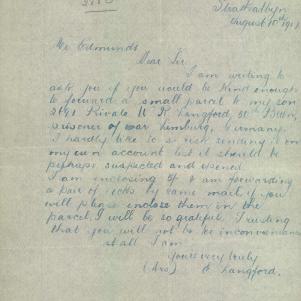 Strathalbyn
August 10th 1917
Mr Edmunds
Dear Sir
I am writing to
ask you if you would be kind enough
to forward a small parcel to my son
2491 Private W R Langford, 50th Battn,
prisoner of war Limburg, Germany.
I hardly like to risk sending it on
my own account lest it should be
perhaps suspected and opened.
I am enclosing & am forwarding
a pair of socks by same mail if you
will please enclose them in the
parcel I will be so grateful. Trusting
that you will not be inconvenienced
at all I am
Yours very truly
(Mrs) Langford.